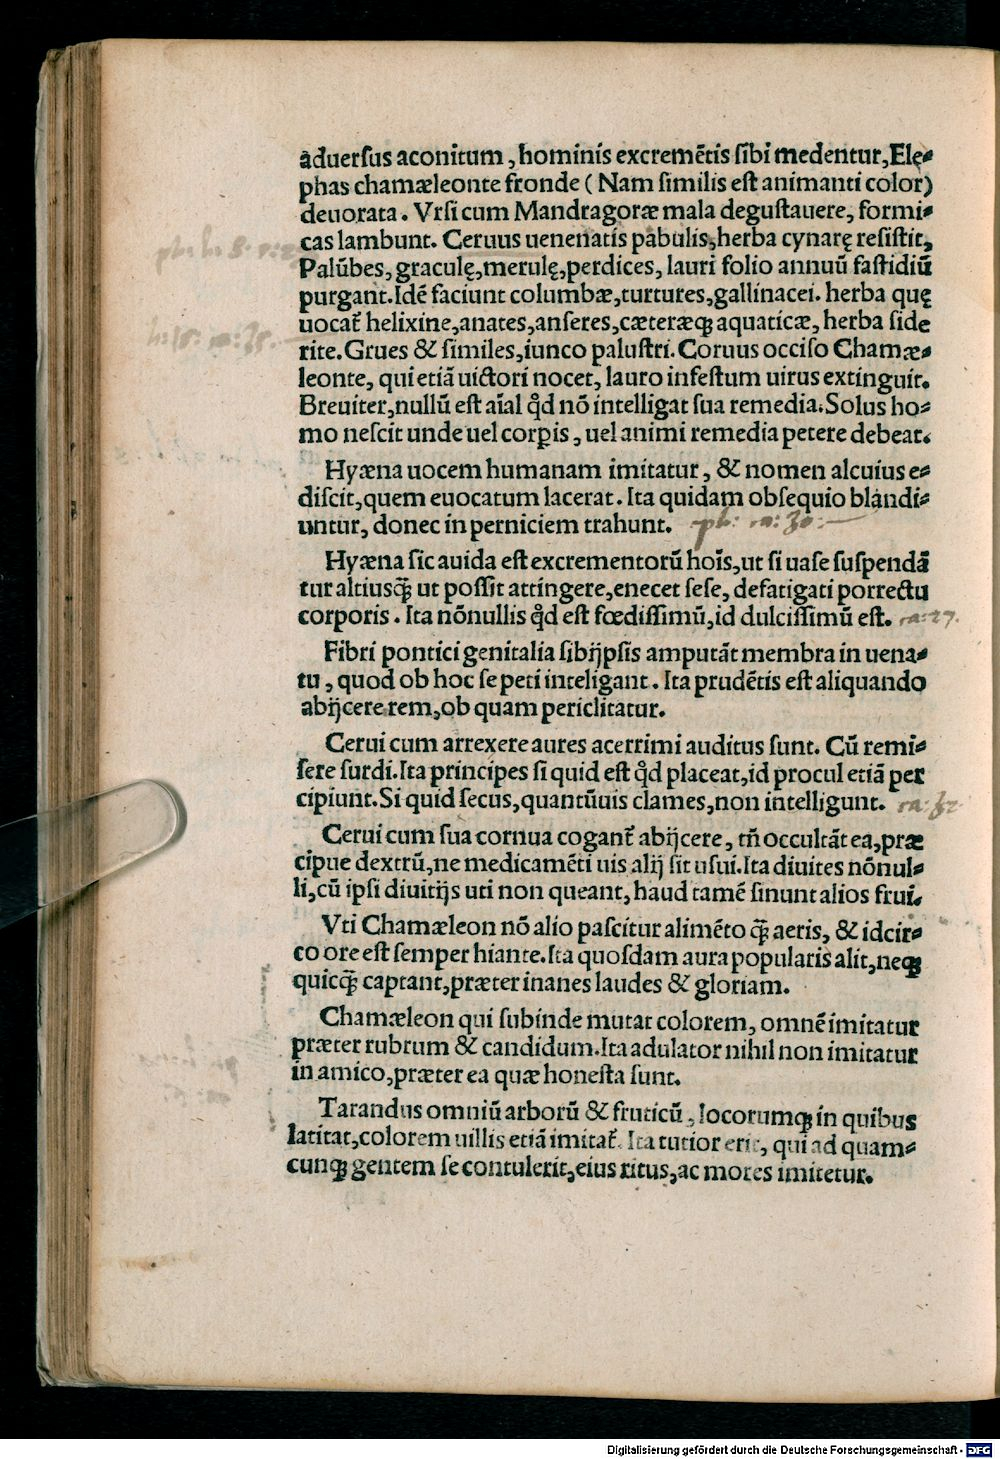 aduersus aconitum, hominis excremẽtis sibi medentur, Elę-
phas chamæleonte fronde (Nam similis est animanti color)
deuorata. Vrsi cum Mandragoræ mala degustauere, formi-
cas lambunt. Ceruus uenenatis pabulis, herba cynarę resistit,
Palũbes, graculę, merulę, perdices, lauri folio annuũ fastidiũ
purgant. Idẽ faciunt columbæ, turtures, gallinacei. herba quę
uocat᷑ helixine, anates, anseres, cæteræq; aquaticæ, herba side
rite. Grues & similes, iunco palustri. Coruus occiso Chamæ-
leonte, qui etiã uictori nocet, lauro infestum uirus extinguit.
Breuiter, nullũ est aĩal qd̓ nõ intelligat sua remedia. Solus ho-
mo nescit unde uel corꝑis, uel animi remedia petere debeat.
Hyæna uocem humanam imitatur, & nomen alcuius e-
discit, quem euocatum lacerat. Ita quidam obsequio blandi-
untur, donec in perniciem trahunt. ph: ra: 30:
Hyæna sic auida est excrementorũ hoĩs, ut si uase suspendã
tur altiusq̃ ut possit attingere, enecet sese, defatigati porrectu
corporis. Ita nõnullis qd̓ est fœdissimũ, id dulcissimũ est. ra: 27.
Fibri pontici genitalia sibijpsis amputãt membra in uena-
tu, quod ob hoc se peti inteligant. Ita prudẽtis est aliquando
abijcere rem, ob quam periclitatur.
Cerui cum arrexere aures acerrimi auditus sunt. Cũ remi-
sere surdi. Ita principes si quid est qd̓ placeat, id procul etiã per
cipiunt. Si quid secus, quantũuis clames, non intelligunt. ra: 32
Cerui cum sua cornua cogant᷑ abijcere, tñ occultãt ea, præ
cipue dextrũ, ne medicamẽti uis alij sit usui. Ita diuites nõnul-
li, cũ ipsi diuitijs uti non queant, haud tamẽ sinunt alios frui.
Vti Chamæleon nõ alio pascitur alimẽto q̃ aeris, & idcir-
co ore est semper hiante. Ita quosdam aura popularis alit, neq;
quicq̃ captant, præter inanes laudes & gloriam.
Chamæleon qui subinde mutat colorem, omnẽ imitatur
præter rubrum & candidum. Ita adulator nihil non imitatur
in amico, præter ea quæ honesta sunt.
Tarandus omniũ arborũ & fruticũ, locorumq; in quibus
latitat, colorem uillis etiã imitat᷑. Ita tutior erit, qui ad quam-
cunq; gentem se contulerit, eius ritus, ac mores imitetur.
Digitalisierung gefördert durch die Deutsche Forschungsgemeinschaft - DFG